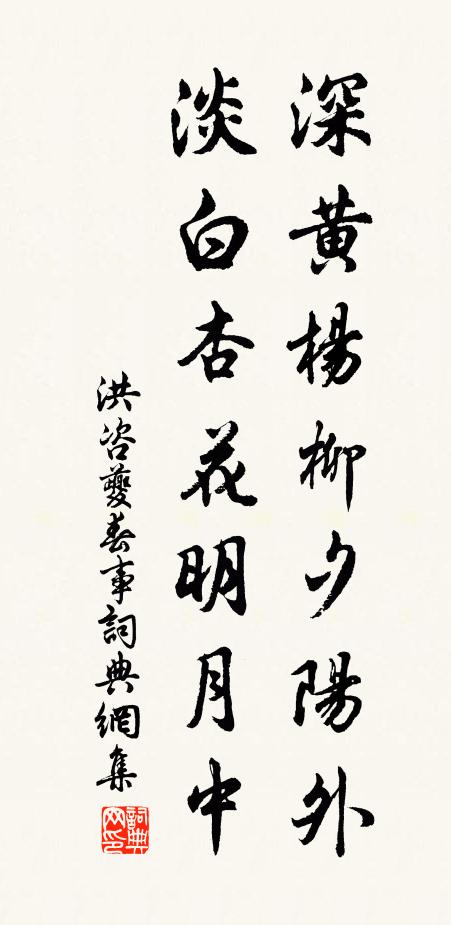 深黄楊柳夕陽外
淡白杏花明月中
洪咨夔春事詞典網集
詞典網印